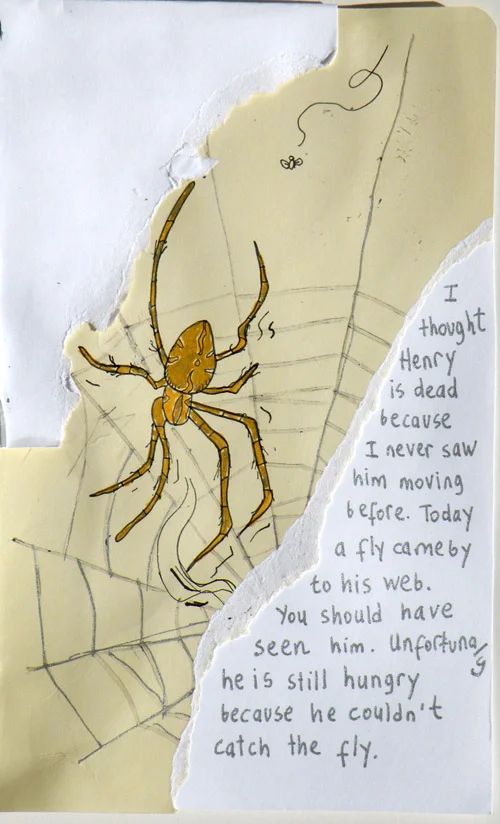 I
thought
Henry
is dead
because
I never saw
him moving
before. Today
a fly came by
to his web.
You should have
seen him. Unfortunaly
he is still hungry
because he couldn't
catch the fly.